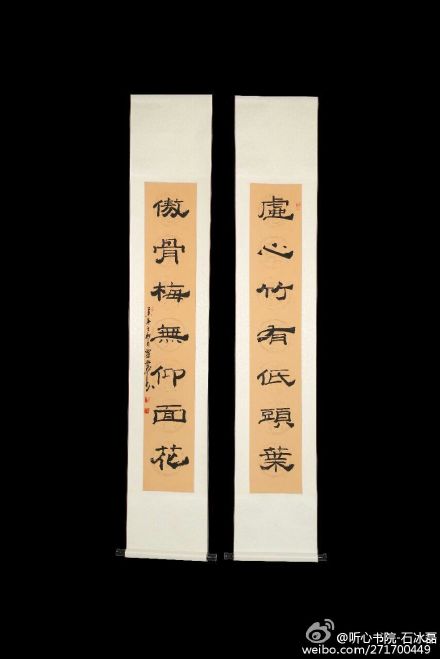 虛心竹有低頭葉
傲骨梅無仰面花
@听心书院-石冰磊
weibo.com/271700449